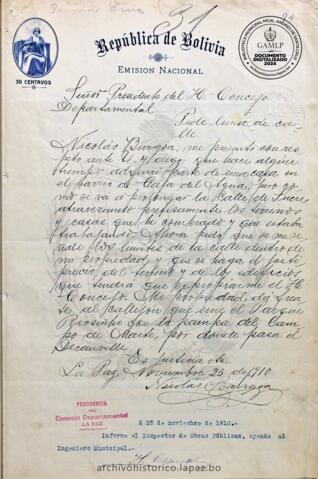 República de Bolivia
EMISION NACIONAL
30 CENTAVOS
BIBLIOTECA MUNICIPAL MCAL. ANDRÉS DE SANTA CRUZ
GAMLP
DOCUMENTO DIGITALIZADO 2024
Señor Presidente del H. Concejo
Departamental
Pide línea de ca-
lle
Nicolás Burgoa, me permito con res-
peto ante U. y digo: que hace algún
tiempo parte de una casa en
el barrio de Caja del Agua, pero co-
mo se vá a prolongar la Calle de Sucre
atravesando precisamente los terrenos
y casas que he comprado y que estaba
trabajando. Ahora pido que se me se-
ñale los límites de la calle dentro de
mi propiedad y que se haga el justi-
precio del terreno y de los edificios
que tendría que expropiarme el H.
Concejo. Mi propiedad da fren-
te al callejón que une el Parque
Riosinho con la pampa del Cam-
po de Marte, por donde pasa el
Decauville.
Es justicia etc
La Paz, Noviembre 25 de 1910
Nicolas Burgoa
PRESIDENCIA
DEL
Concejo Departamental
LA PAZ
á 26 de noviembre de 1910.-
Informe el Inspector de Obras Públicas, oyendo al
Ingeniero Municipal.
archivohistorico.lapaz.bo